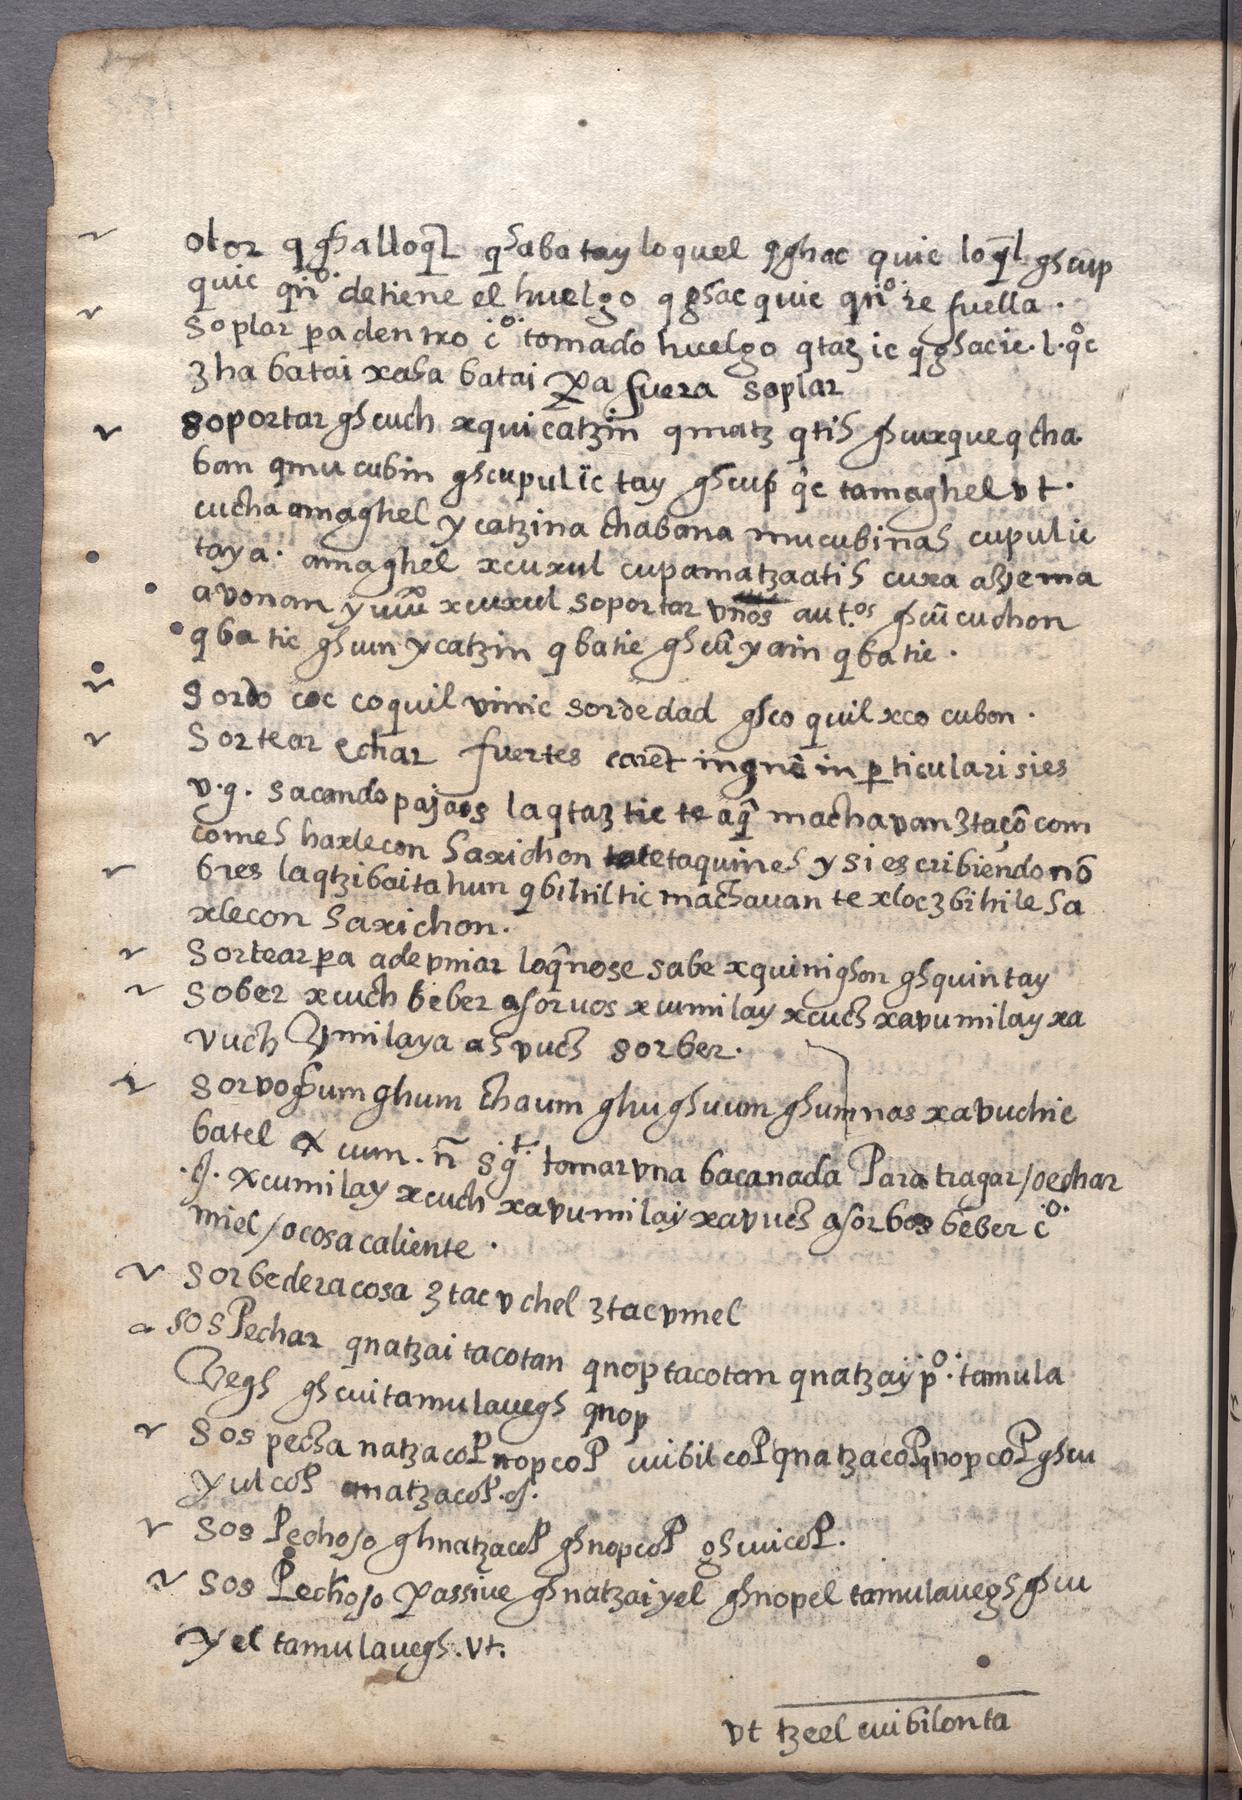 olor q ghalloq̃l qhaba tay loquel qghac quic loq̃l ghcup
quic qñº detiene el huelgo q ghac quic qñº re fuella.
soplar pa dentro cº tomado huelgo qtaz ic q ghacic. l. qºc
zha batai xaha batai Pa fuera soplar
soportar ghcuch xqui catzin qmatz qtih ghcuxque q cha
ban qmu cubin ghcupul ic tay ghcup q̂c tamaghel vt.
cucha amaghel y catzina chabana mucubinah cupulic
taya. amaghel xcuxul cupamatzaatih cuxa
avonan xcuxul soportar vnos aut.os ghcũcuchon
qbatic ghcun ycatzin qbatic ghcũyain qbatic.
Sordo coc coquil vinic sordedad ghco quil xco cubon.
Sortear echar suertes caret in gñe in perticulari sies
v.g. sacando pajaos laqtaz tic te aq̂ machavan ztacõ com
comeh haxlecon haxichon tetaquineh y si escribiendo nõ
bres laqtzibaita hun qbihiltic machavan te xloczbihile ha
xlecon haxichon.
Sortear pa adevniar loq̂nose sabe xquinighon ghquintay
Sober xcuch beber asorvos xcumilay xcuch xavumilay xa
vuch milaya ah vuch sorber.
Sorvo ghum ghum chaum ghu ghuum ghumnas xavuchic
batel xcum. ñ sigt. tomar vna bacanada Para tragar / oechar
.q. xcumilay xcuch xavumilay xavuch asorbos beber cº.
miel / o cosa caliente.
Sorbedera cosa ztac vchel ztacvmel
SosPechar qnatzai tacotan qnop tacotan qnatzay pº. tamula
vegh ghcuitamulavegh qnop
Sospecha natzacoP nopcoP cuibil coP qnatzacoP qnopcoP ghcu
yul coP natzacoP.q.
SosPechoso ghnatzacoP ghnopcoP ghcuicoP.
SosPechoso Passive ghnatzaiyel ghnopel tamulavegh ghcu
yel tamulavegh. vt.
vt tzeel cuibilonta